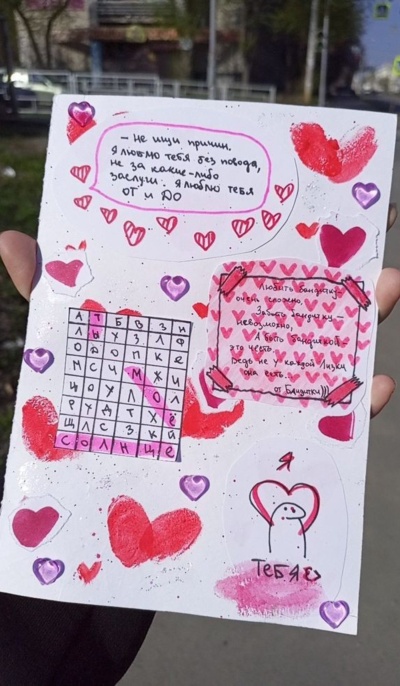 – не ищи причин.
Я люблю тебя без повода,
не за какие-либо
заслуги. Я люблю тебя
от и до
Любить бандитку –
очень сложно,
Забыть бандитку –
невозможно,
А быть бандиткой –
это честь.
Ведь не у каждой
она есть...
от Бандитки)))
А Т Б В З Й
Л Ы Х З Л Ф
О О О П К Е
М С Ч М Ж И
Ц О У Л О Л
Р У Д Т Х Ё
Щ Л С З К Й
С О Л Н Ц Е
Я
ТЕБЯ